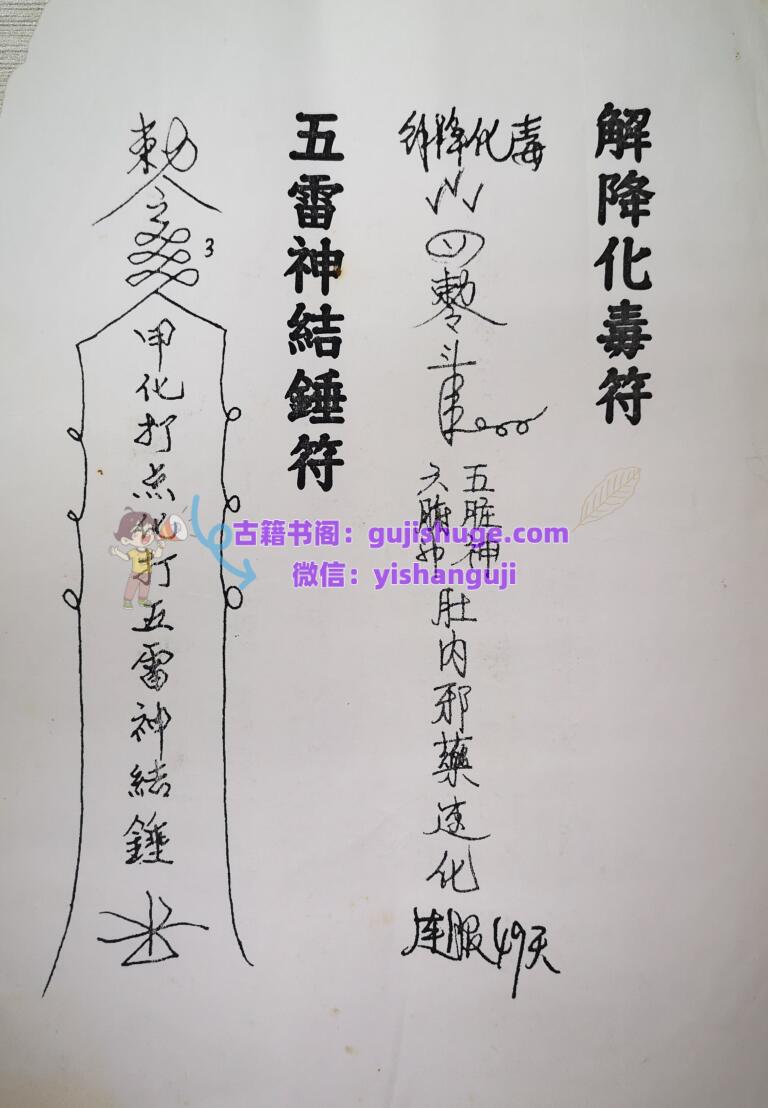 解降化毒符
解降化毒
敕令
斗
五脏神
六腑神
肚内邪藥速化
连服49天
五雷神結錘符
勅
3
甲化打点化打五雷神結錘
古籍书阁：gujishuge.com
微信：yishanguji